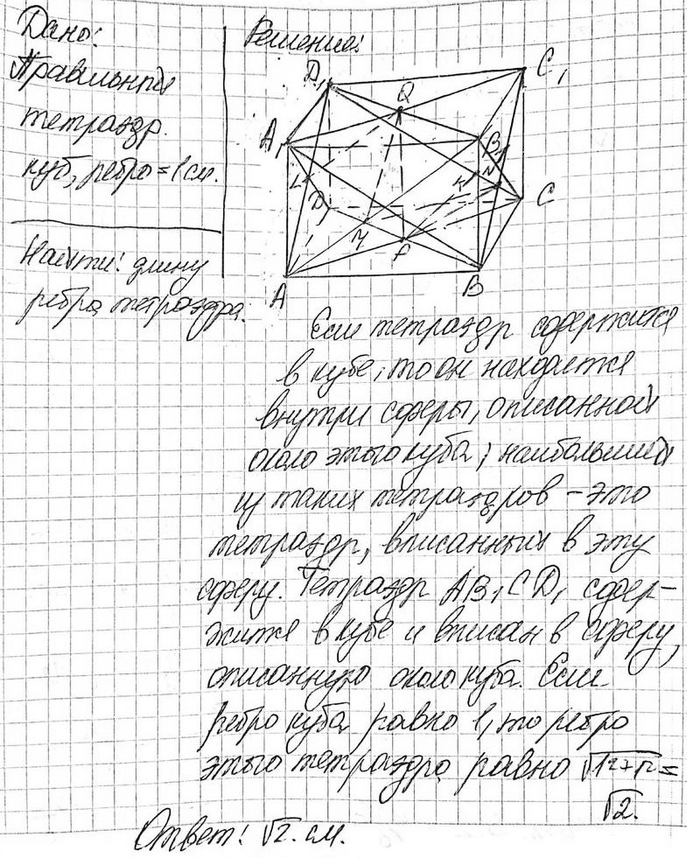 Дано:
Правильный
тетраэдр.
куб, ребро = 1 см.
Найти: длину
ребра тетраэдра.
Решение:
D₁ C₁
Q
A₁ B₁
L K N
D C
M P
A B
Если тетраэдр содержится
в кубе, то он находится
внутри сферы, описанной
около этого куба; наибольший
из таких тетраэдров – это
тетраэдр, вписанный в эту
сферу. Тетраэдр AB₁CD₁ содер-
жится в кубе и вписан в сферу,
описанную около куба. Если
ребро куба равно 1, то ребро
этого тетраэдра равно √1²+1² =
√2.
Ответ: √2. см.